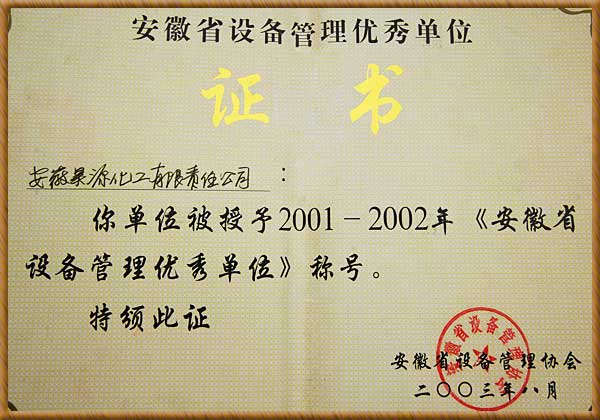 安徽省设备管理优秀单位
证书
安徽昊源化工有限责任公司：
你单位被授予2001－2002年《安徽省
设备管理优秀单位》称号。
特颁此证
安徽省设备管理协会
安徽省设备管理协会
二〇〇三年八月